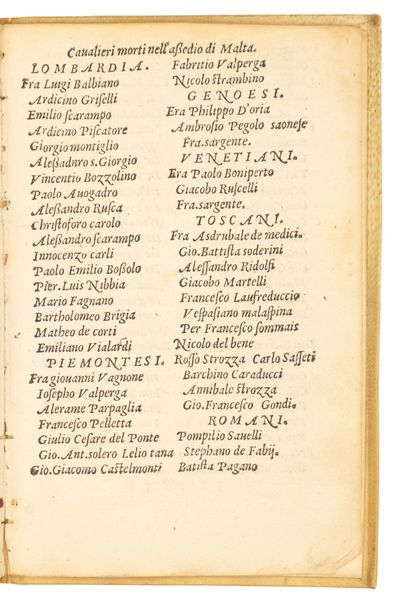 Caualieri morti nell'aßedio di Malta.
LOMBARDIA.
Fra Luigi Balbiano
Ardicino Griſelli
Emilio scarampo
Ardicino Piſcatore
Giorgio montiglio
Aleßadnro s.Giorgio
Vincentio Bozzolino
Paolo Auogadro
Aleßandro Ruſca
Chriſtoforo carolo
Aleßandro ſcarampo
Innocenzo carli
Paolo Emilio Boßolo
Pier.Luis Nibbia
Mario Fagnano
Bartholomeo Brigia
Matheo de corti
Emiliano Vialardi
PIEMONTESI.
Fra giouanni Vagnone
Ioſepho Valperga
Alerame Parpaglia
Franceſco Pelletta
Giulio Ceſare del Ponte
Gio.Ant.solero Lelio tana
Gio.Giacomo Caſtelmonti
Fabritio Valperga
Nicolo ſtrambino
GENOESI.
Era Philippo D'oria
Ambroſio Pegolo saoneſe
Fra.sargente.
VENETIANI.
Era Paolo Boniperto
Giacobo Ruſcelli
Fra.sargente.
TOSCANI.
Fra Asdrubale de medici.
Gio.Battiſta soderini
Aleſſandro Ridolfi
Giacobo Martelli
Franceſco Laufreduccio
Veſpaſiano malaſpina
Per Franceſco ſommais
Nicolo del bene
Roſſo Strozza Carlo Saſſeti
Barchino Caraducci
Annibale ſtrozza
Gio.Franceſco Gondi.
ROMANI.
Pompilio Sauelli
Stephano de Fabij.
Batiſta Pagano